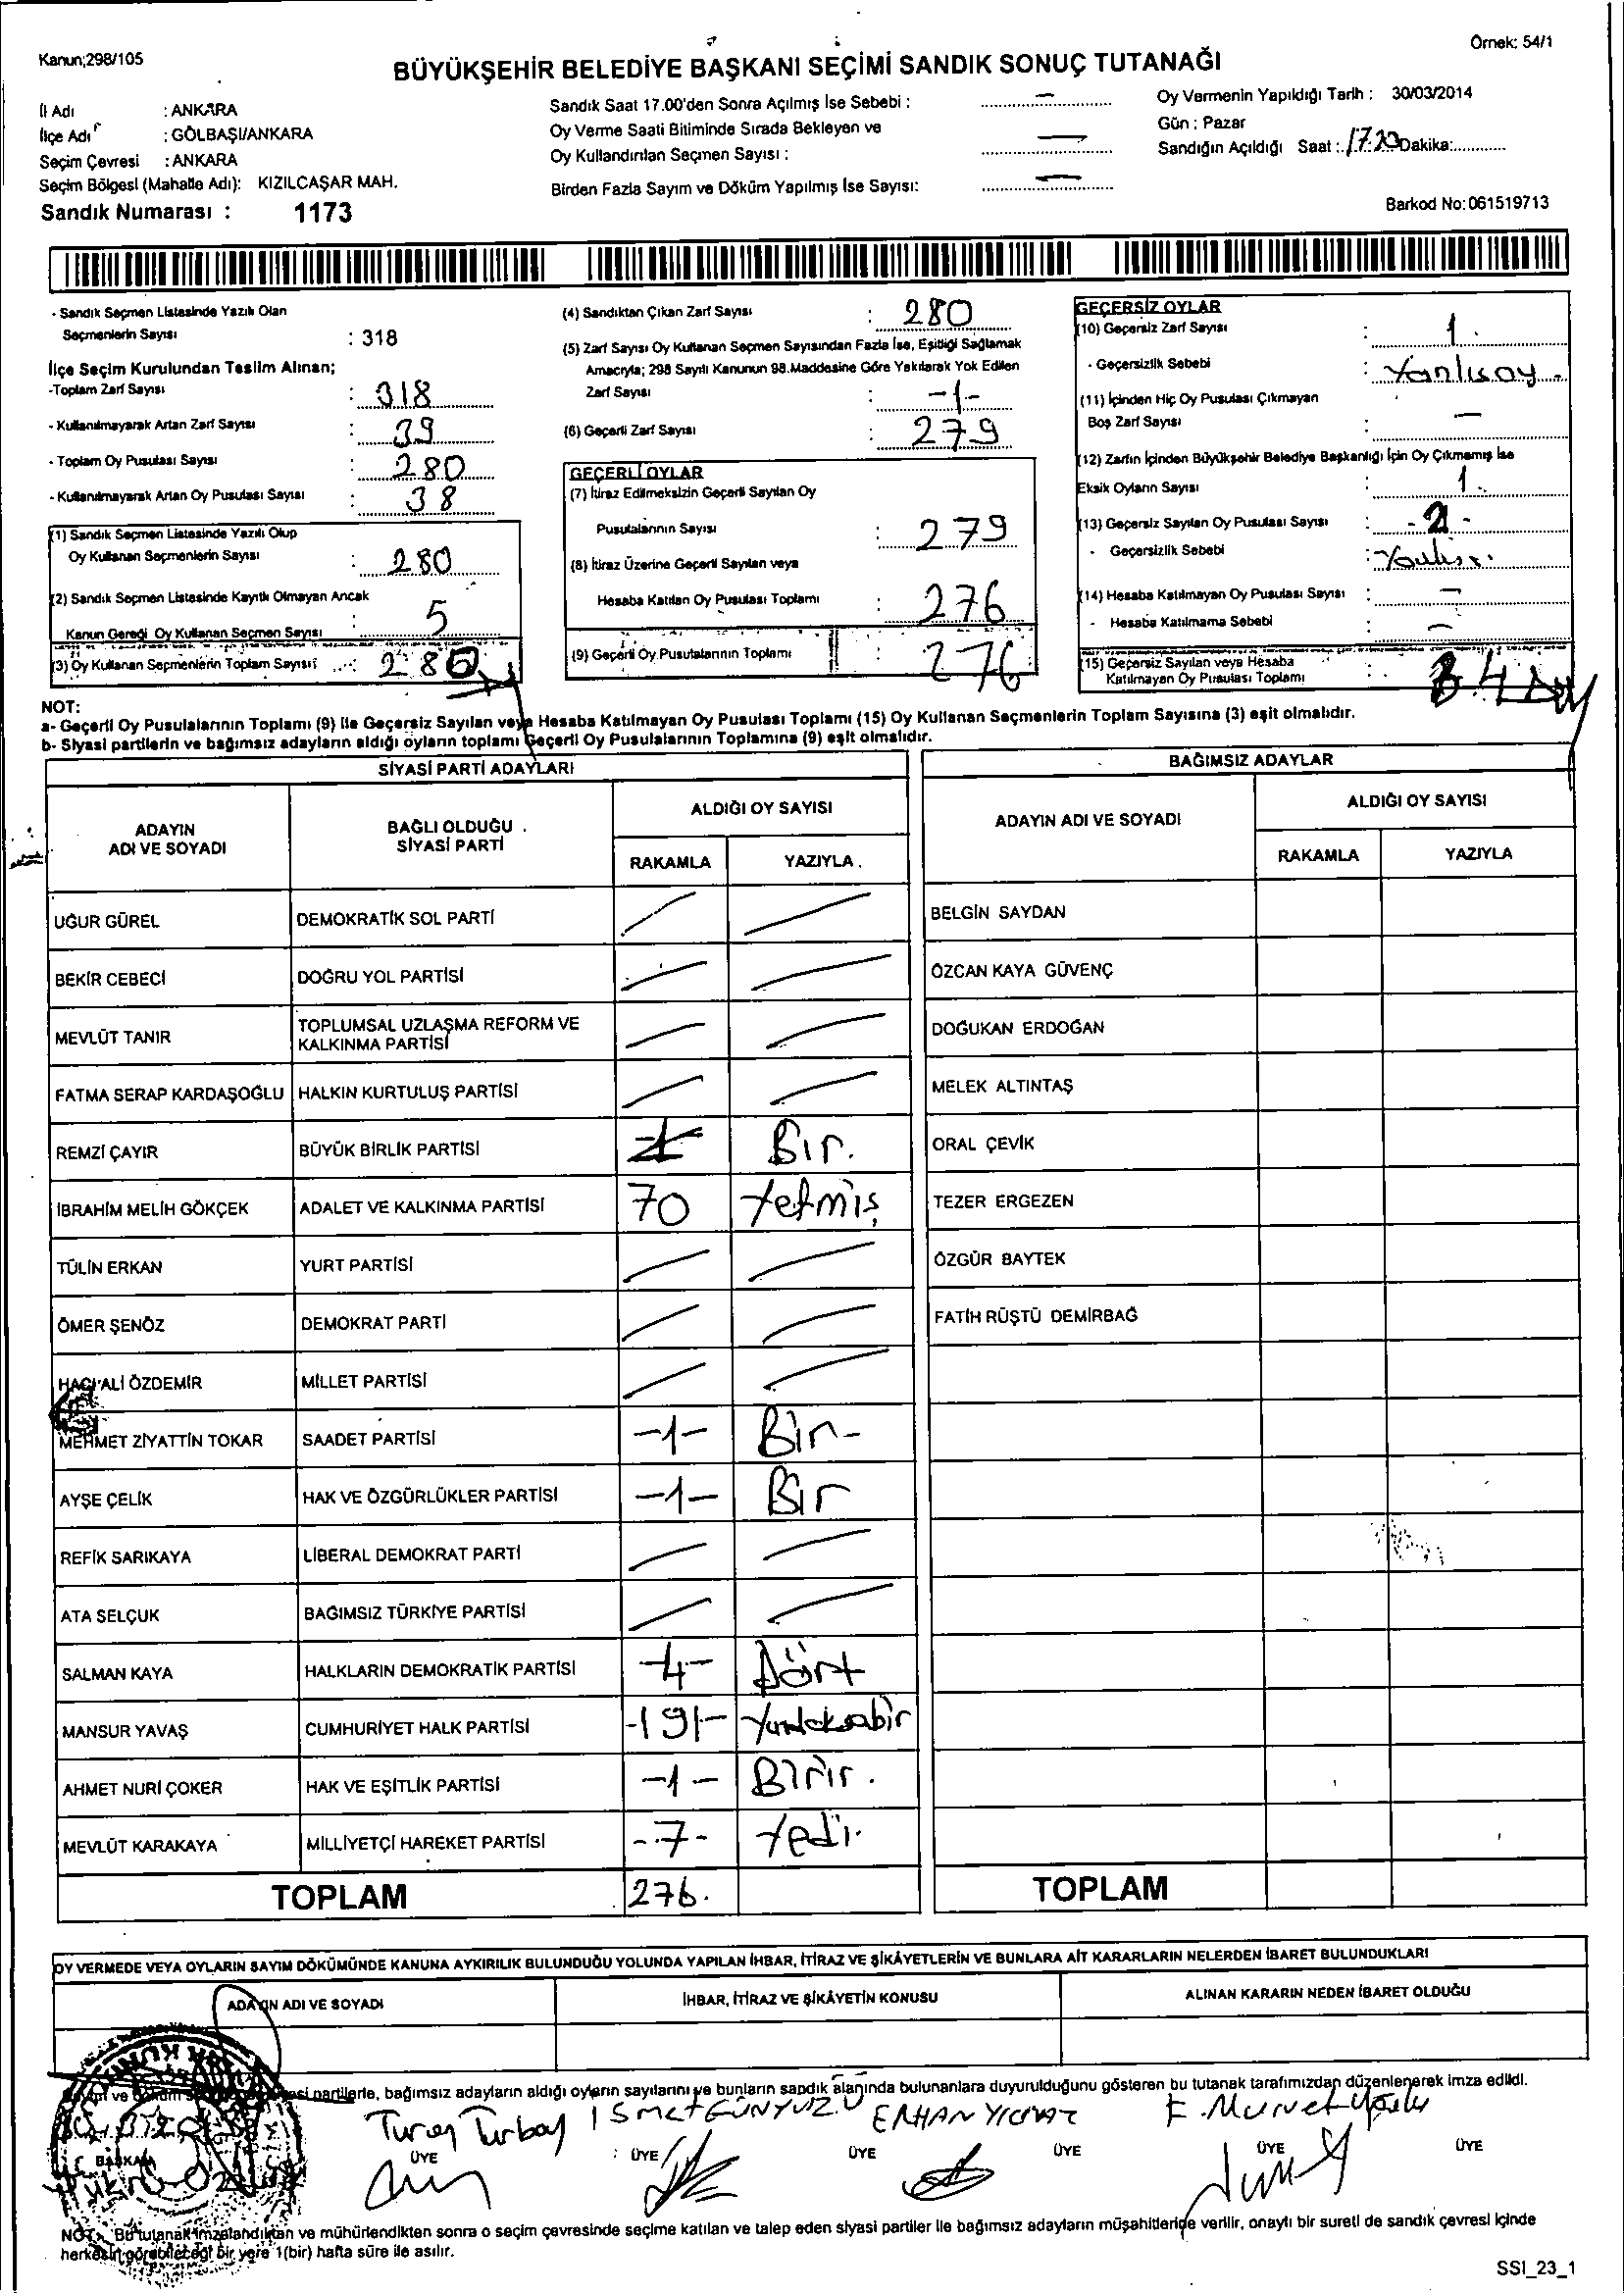 Kanun;298/105
Örnek: 54/1
BÜYÜKŞEHİR BELEDİYE BAŞKANI SEÇİMİ SANDIK SONUÇ TUTANAĞI
İl Adı : ANKARA
İlçe Adı : GÖLBAŞI/ANKARA
Seçim Çevresi : ANKARA
Seçim Bölgesi (Mahalle Adı): KIZILCAŞAR MAH.
Sandık Numarası : 1173
Sandık Saat 17.00'den Sonra Açılmış İse Sebebi : –
Oy Verme Saati Bitiminde Sırada Bekleyen ve
Oy Kullandırılan Seçmen Sayısı : –
Birden Fazla Sayım ve Döküm Yapılmış İse Sayısı: –
Oy Vermenin Yapıldığı Tarih : 30/03/2014
Gün : Pazar
Sandığın Açıldığı Saat : 17.20 Dakika:............
Barkod No:061519713
- Sandık Seçmen Listesinde Yazılı Olan
Seçmenlerin Sayısı : 318
İlçe Seçim Kurulundan Teslim Alınan;
-Toplam Zarf Sayısı : 318
- Kullanılmayarak Artan Zarf Sayısı : 39
- Toplam Oy Pusulası Sayısı : 280
- Kullanılmayarak Artan Oy Pusulası Sayısı : 38
(1) Sandık Seçmen Listesinde Yazılı Olup
Oy Kullanan Seçmenlerin Sayısı : 280
(2) Sandık Seçmen Listesinde Kayıtlı Olmayan Ancak
Kanun Gereği Oy Kullanan Seçmen Sayısı : 5
(3) Oy Kullanan Seçmenlerin Toplam Sayısı : 280
(4) Sandıktan Çıkan Zarf Sayısı : 280
(5) Zarf Sayısı Oy Kullanan Seçmen Sayısından Fazla İse, Eşitliği Sağlamak
Amacıyla; 298 Sayılı Kanunun 98.Maddesine Göre Yakılarak Yok Edilen
Zarf Sayısı : -1-
(6) Geçerli Zarf Sayısı : 279
GEÇERLİ OYLAR
(7) İtiraz Edilmeksizin Geçerli Sayılan Oy
Pusulalarının Sayısı : 279
(8) İtiraz Üzerine Geçerli Sayılan veya
Hesaba Katılan Oy Pusulası Toplamı : 276
(9) Geçerli Oy Pusulalarının Toplamı : 276
GEÇERSİZ OYLAR
(10) Geçersiz Zarf Sayısı : 1.
- Geçersizlik Sebebi : Yanlısoy -
(11) İçinden Hiç Oy Pusulası Çıkmayan
Boş Zarf Sayısı : –
(12) Zarfın İçinden Büyükşehir Belediye Başkanlığı İçin Oy Çıkmamış İse
Eksik Oyların Sayısı : 1.
(13) Geçersiz Sayılan Oy Pusulası Sayısı : -2-
- Geçersizlik Sebebi :
(14) Hesaba Katılmayan Oy Pusulası Sayısı : –
- Hesaba Katılmama Sebebi : –
(15) Geçersiz Sayılan veya Hesaba
Katılmayan Oy Pusulası Toplamı : 4
NOT:
a- Geçerli Oy Pusulalarının Toplamı (9) ile Geçersiz Sayılan veya Hesaba Katılmayan Oy Pusulası Toplamı (15) Oy Kullanan Seçmenlerin Toplam Sayısına (3) eşit olmalıdır.
b- Siyasi partilerin ve bağımsız adayların aldığı oyların toplamı Geçerli Oy Pusulalarının Toplamına (9) eşit olmalıdır.
SİYASİ PARTİ ADAYLARI
ADAYIN ADI VE SOYADI
BAĞLI OLDUĞU SİYASİ PARTİ
ALDIĞI OY SAYISI
RAKAMLA YAZIYLA
UĞUR GÜREL DEMOKRATİK SOL PARTİ
BEKİR CEBECİ DOĞRU YOL PARTİSİ
MEVLÜT TANIR TOPLUMSAL UZLAŞMA REFORM VE KALKINMA PARTİSİ
FATMA SERAP KARDAŞOĞLU HALKIN KURTULUŞ PARTİSİ
REMZİ ÇAYIR BÜYÜK BİRLİK PARTİSİ 1 Bır.
İBRAHİM MELİH GÖKÇEK ADALET VE KALKINMA PARTİSİ 70 Yetmiş
TÜLİN ERKAN YURT PARTİSİ
ÖMER ŞENÖZ DEMOKRAT PARTİ
HACI ALİ ÖZDEMİR MİLLET PARTİSİ
MEHMET ZİYATTİN TOKAR SAADET PARTİSİ -1- Bir-
AYŞE ÇELİK HAK VE ÖZGÜRLÜKLER PARTİSİ -1- Bır
REFİK SARIKAYA LİBERAL DEMOKRAT PARTİ
ATA SELÇUK BAĞIMSIZ TÜRKİYE PARTİSİ
SALMAN KAYA HALKLARIN DEMOKRATİK PARTİSİ -4- Dört
MANSUR YAVAŞ CUMHURİYET HALK PARTİSİ -191-
AHMET NURİ ÇOKER HAK VE EŞİTLİK PARTİSİ -1- Birir.
MEVLÜT KARAKAYA MİLLİYETÇİ HAREKET PARTİSİ -7- Yedi.
TOPLAM 276.
BAĞIMSIZ ADAYLAR
ADAYIN ADI VE SOYADI
ALDIĞI OY SAYISI
RAKAMLA YAZIYLA
BELGİN SAYDAN
ÖZCAN KAYA GÜVENÇ
DOĞUKAN ERDOĞAN
MELEK ALTINTAŞ
ORAL ÇEVİK
TEZER ERGEZEN
ÖZGÜR BAYTEK
FATİH RÜŞTÜ DEMİRBAĞ
TOPLAM
OY VERMEDE VEYA OYLARIN SAYIM DÖKÜMÜNDE KANUNA AYKIRILIK BULUNDUĞU YOLUNDA YAPILAN İHBAR, İTİRAZ VE ŞİKÂYETLERİN VE BUNLARA AİT KARARLARIN NELERDEN İBARET BULUNDUKLARI
ADAYIN ADI VE SOYADI İHBAR, İTİRAZ VE ŞİKÂYETİN KONUSU ALINAN KARARIN NEDEN İBARET OLDUĞU
partilerle, bağımsız adayların aldığı oyların sayılarını ve bunların sandık alanında bulunanlara duyurulduğunu gösteren bu tutanak tarafımızdan düzenlenerek imza edildi.
Turay Turbay İSMET GÜNYÜZÜ ERHAN YILMAZ
BAŞKAN ÜYE ÜYE ÜYE ÜYE ÜYE ÜYE
NOT: Bu tutanak imzalandıktan ve mühürlendikten sonra o seçim çevresinde seçime katılan ve talep eden siyasi partiler ile bağımsız adayların müşahitlerine verilir, onaylı bir sureti de sandık çevresi içinde
herkesin görebileceği bir yere 1(bir) hafta süre ile asılır.
SSI_23_1